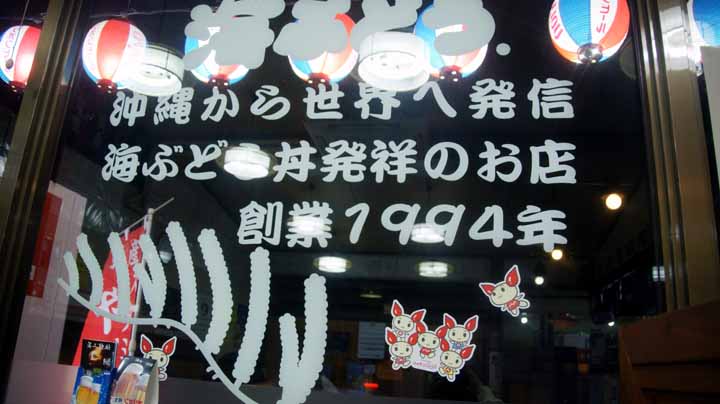 海ぶどう.
沖縄から世界へ発信
海ぶどう丼発祥のお店
創業1994年